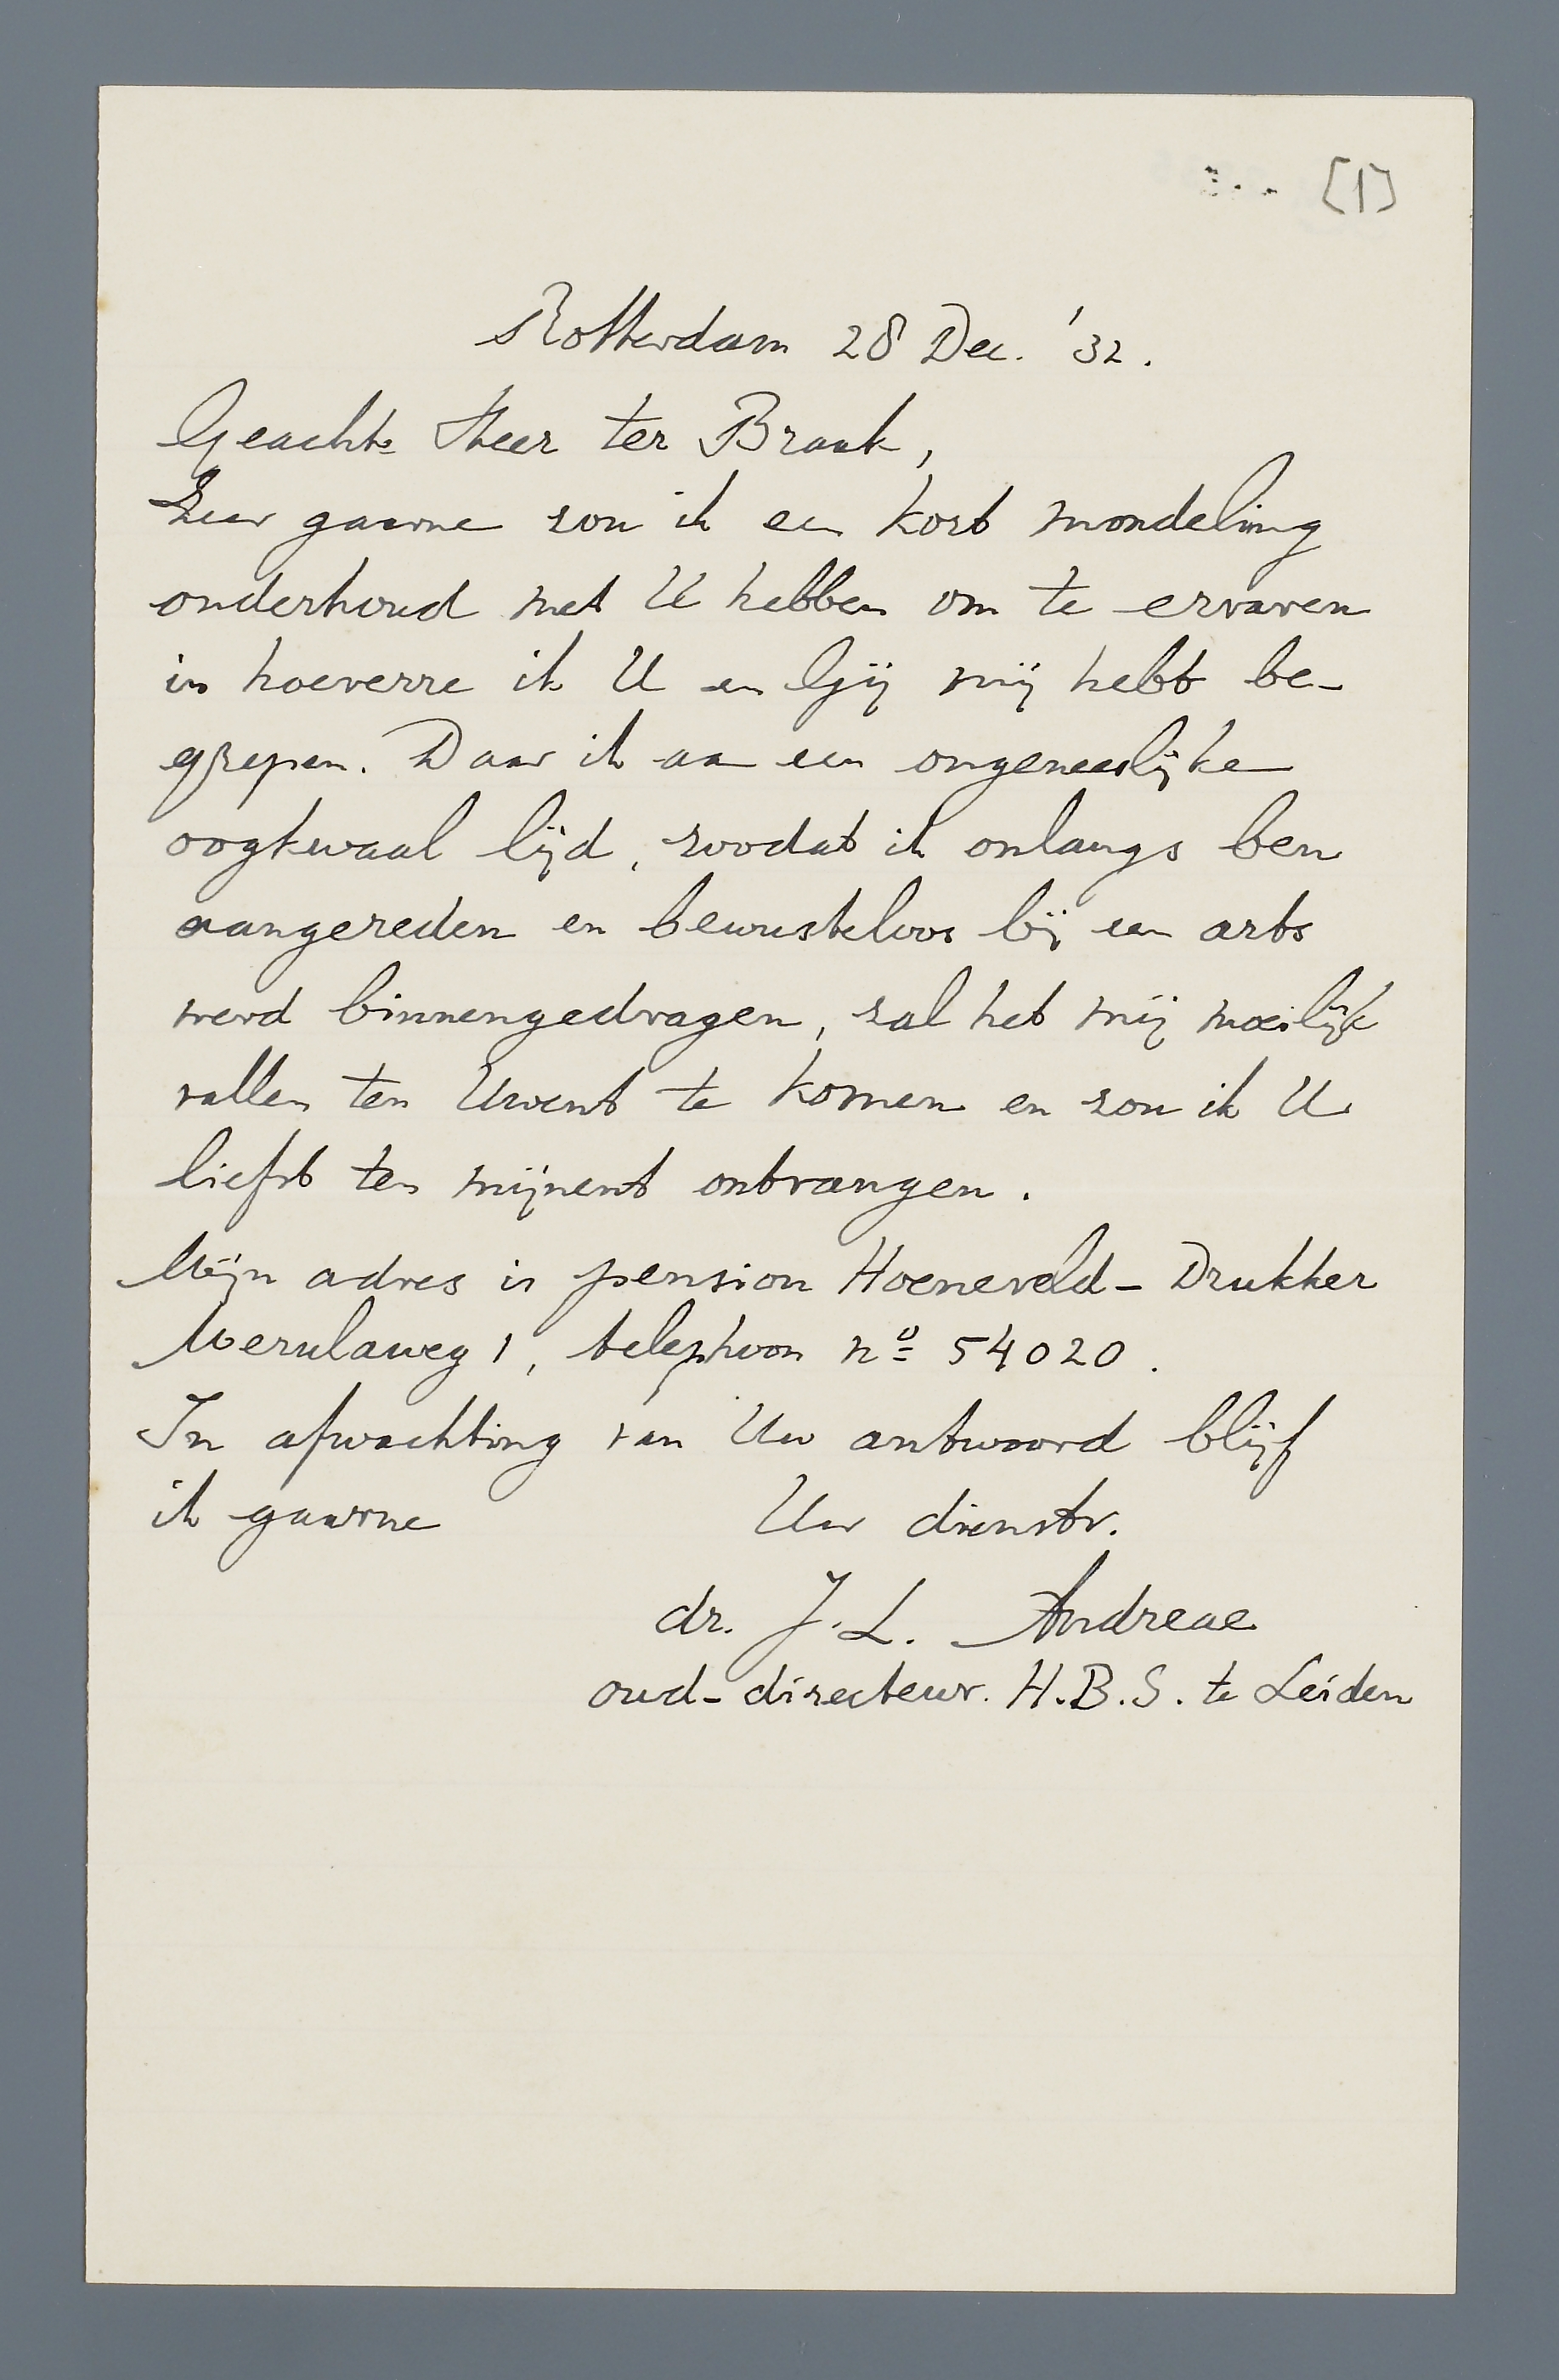 [1]
Rotterdam 28 Dec. '32.
Geachte Heer ter Braak,
Zeer gaarne zou ik een kort mondeling
onderhoud met U hebben om te ervaren
in hoeverre ik U en Gij mij hebt be-
grepen. Daar ik aan een ongeneeslijke
oogkwaal lijd, zoodat ik onlangs ben
aangereden en bewusteloos bij een arts
werd binnengedragen, zal het mij moeilijk
vallen ten Uwent te komen en zou ik U
liefst ten mijnent ontvangen.
Mijn adres is pension Hoeneveld - Drukker
Merulaweg 1, telephoon no 54020.
In afwachting van Uw antwoord blijf
ik gaarne Uw dienstv.
dr. J. L. Andreae
oud-directeur. H.B.S. te Leiden